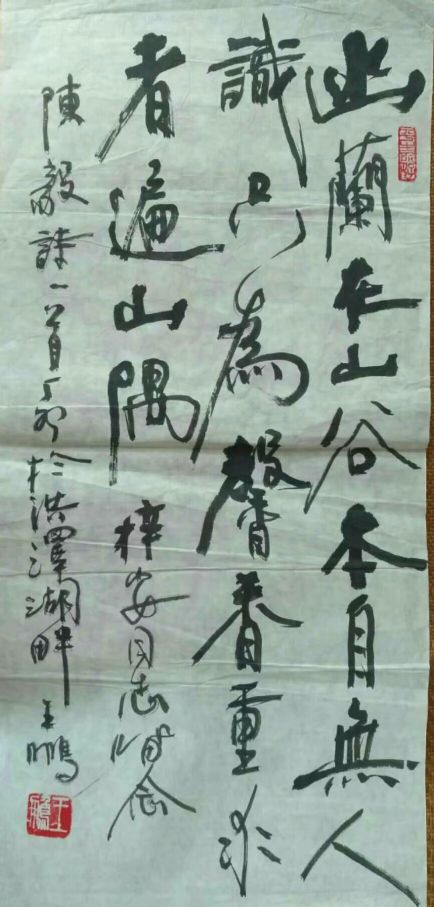 幽蘭在山谷本自無人
識只為馨香重求
者遍山隅 梓安同志留念
陳毅詩一首丁卯於洪澤湖畔 王鵬
王鵬